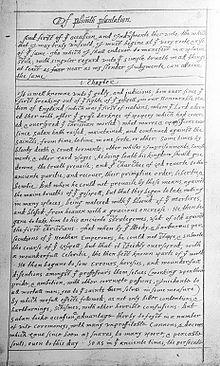 Of plimoth plantation.
And first of yᵉ occasion, and Indusments ther unto; the which
that I may truly unfould, I must begine at yᵉ very roote & rise
of yᵉ same. The which I shall endevor to manefest in a plaine
stile; with singuler regard unto yᵉ simple trueth in all things,
at least as near as my slender Judgmente can attaine
the same.
1. Chapter
It is well knowne unto yᵉ godly, and judicious, how ever since yᵉ
first breaking out of yᵉ lighte of yᵉ gospell, in our Honourable Na-
tion of England (which was yᵉ first of nations, whom yᵉ Lord adorn-
ed ther with, affter yᵗ grosse darknes of popery which had covered,
& overspred yᵉ christian world) what warrs, & oppossissions ever
since Satan hath raised, maintained, and continued against the
saincts, from time, to time, in one sorte, or other. Some times by
bloody death & cruell torments, other whiles Imprisonments, banish-
ments, & other hard usages. As being loath his kingdom should goe
downe, the trueth prevaile; and yᵉ Churches of god reverte to their
anciente puritie; and recover, their primative order, libertie, &
bewtie. But when he could not prevaile by these means, against
the maine trueths of yᵉ gospell, but that they began to take rootting
in many places; being watered with yᵉ blood of yᵉ martires,
and blessed from heaven with a gracious encrease. He then be-
gane to take him to his anciente strategemes, used of old against
the first christians. That when by yᵉ bloody, & barbarous per-
secutions of yᵉ Heathen Emperours, he could not stoppe, & subuerte
the course of yᵉ Gospell; but that it speedily overspred, with
a wounderfull Celeritie, the then best known parts of yᵉ world.
He then begane to sow errours, heresies, and wounderfull
dissentions amongst yᵉ professours them selves (working upon their
pride, & ambition, with other corrupte passions, Incidente to
all mortall men; yea to yᵉ saints them selves in some measure)
By which wofull effects followed; as not only bitter contentions, &
hartburnings, schismes, with other horrible confusions. But
Satan tooke occasion & advantage therby to foyst in a number
of vile ceremoneys, with many unproffitable Cannons, & decrees
which have since been as snares, to many poore, & peaceable
souls, even to this day. So as in yᵉ anciente times, the persecuti-